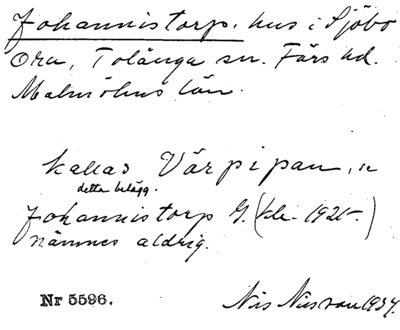 Johannistorp. hus i Sjöbo
Ora, Tolånga sn. Färs hd.
Malmöhus län.
kallas Värpipan,
detta belägg.
Johannistorp G. 1925
nämnes aldrig.
Nr 5596.
Nis 1934.